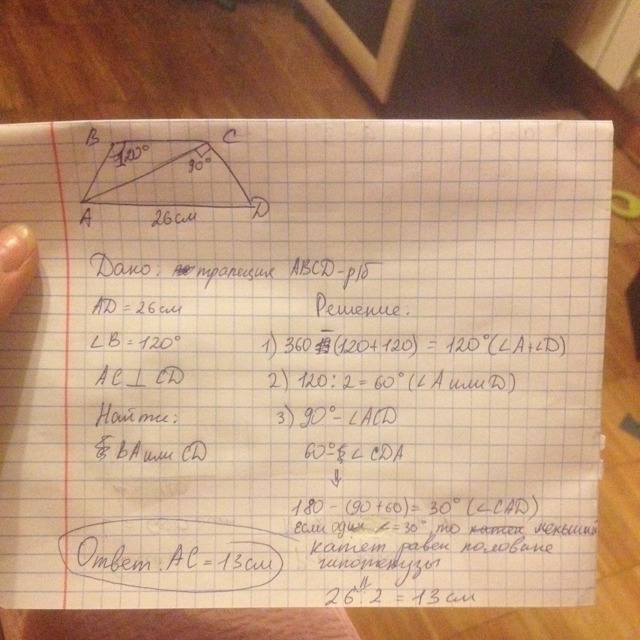 B C
120°
90°
A D
26см
Дано: трапеция ABCD-р/б
AD = 26см
∠B = 120°
AC ⊥ CD
Найти:
BA или CD
Решение.
1) 360 - (120+120) = 120° (∠A+∠D)
2) 120 : 2 = 60° (∠A или D)
3) 90° - ∠ACD
60° - ∠CDA
↓
180 - (90+60) = 30° (∠CAD)
если один ∠ = 30°, то меньший
катет равен половине
гипотенузы
26 : 2 = 13см
Ответ: AC = 13см